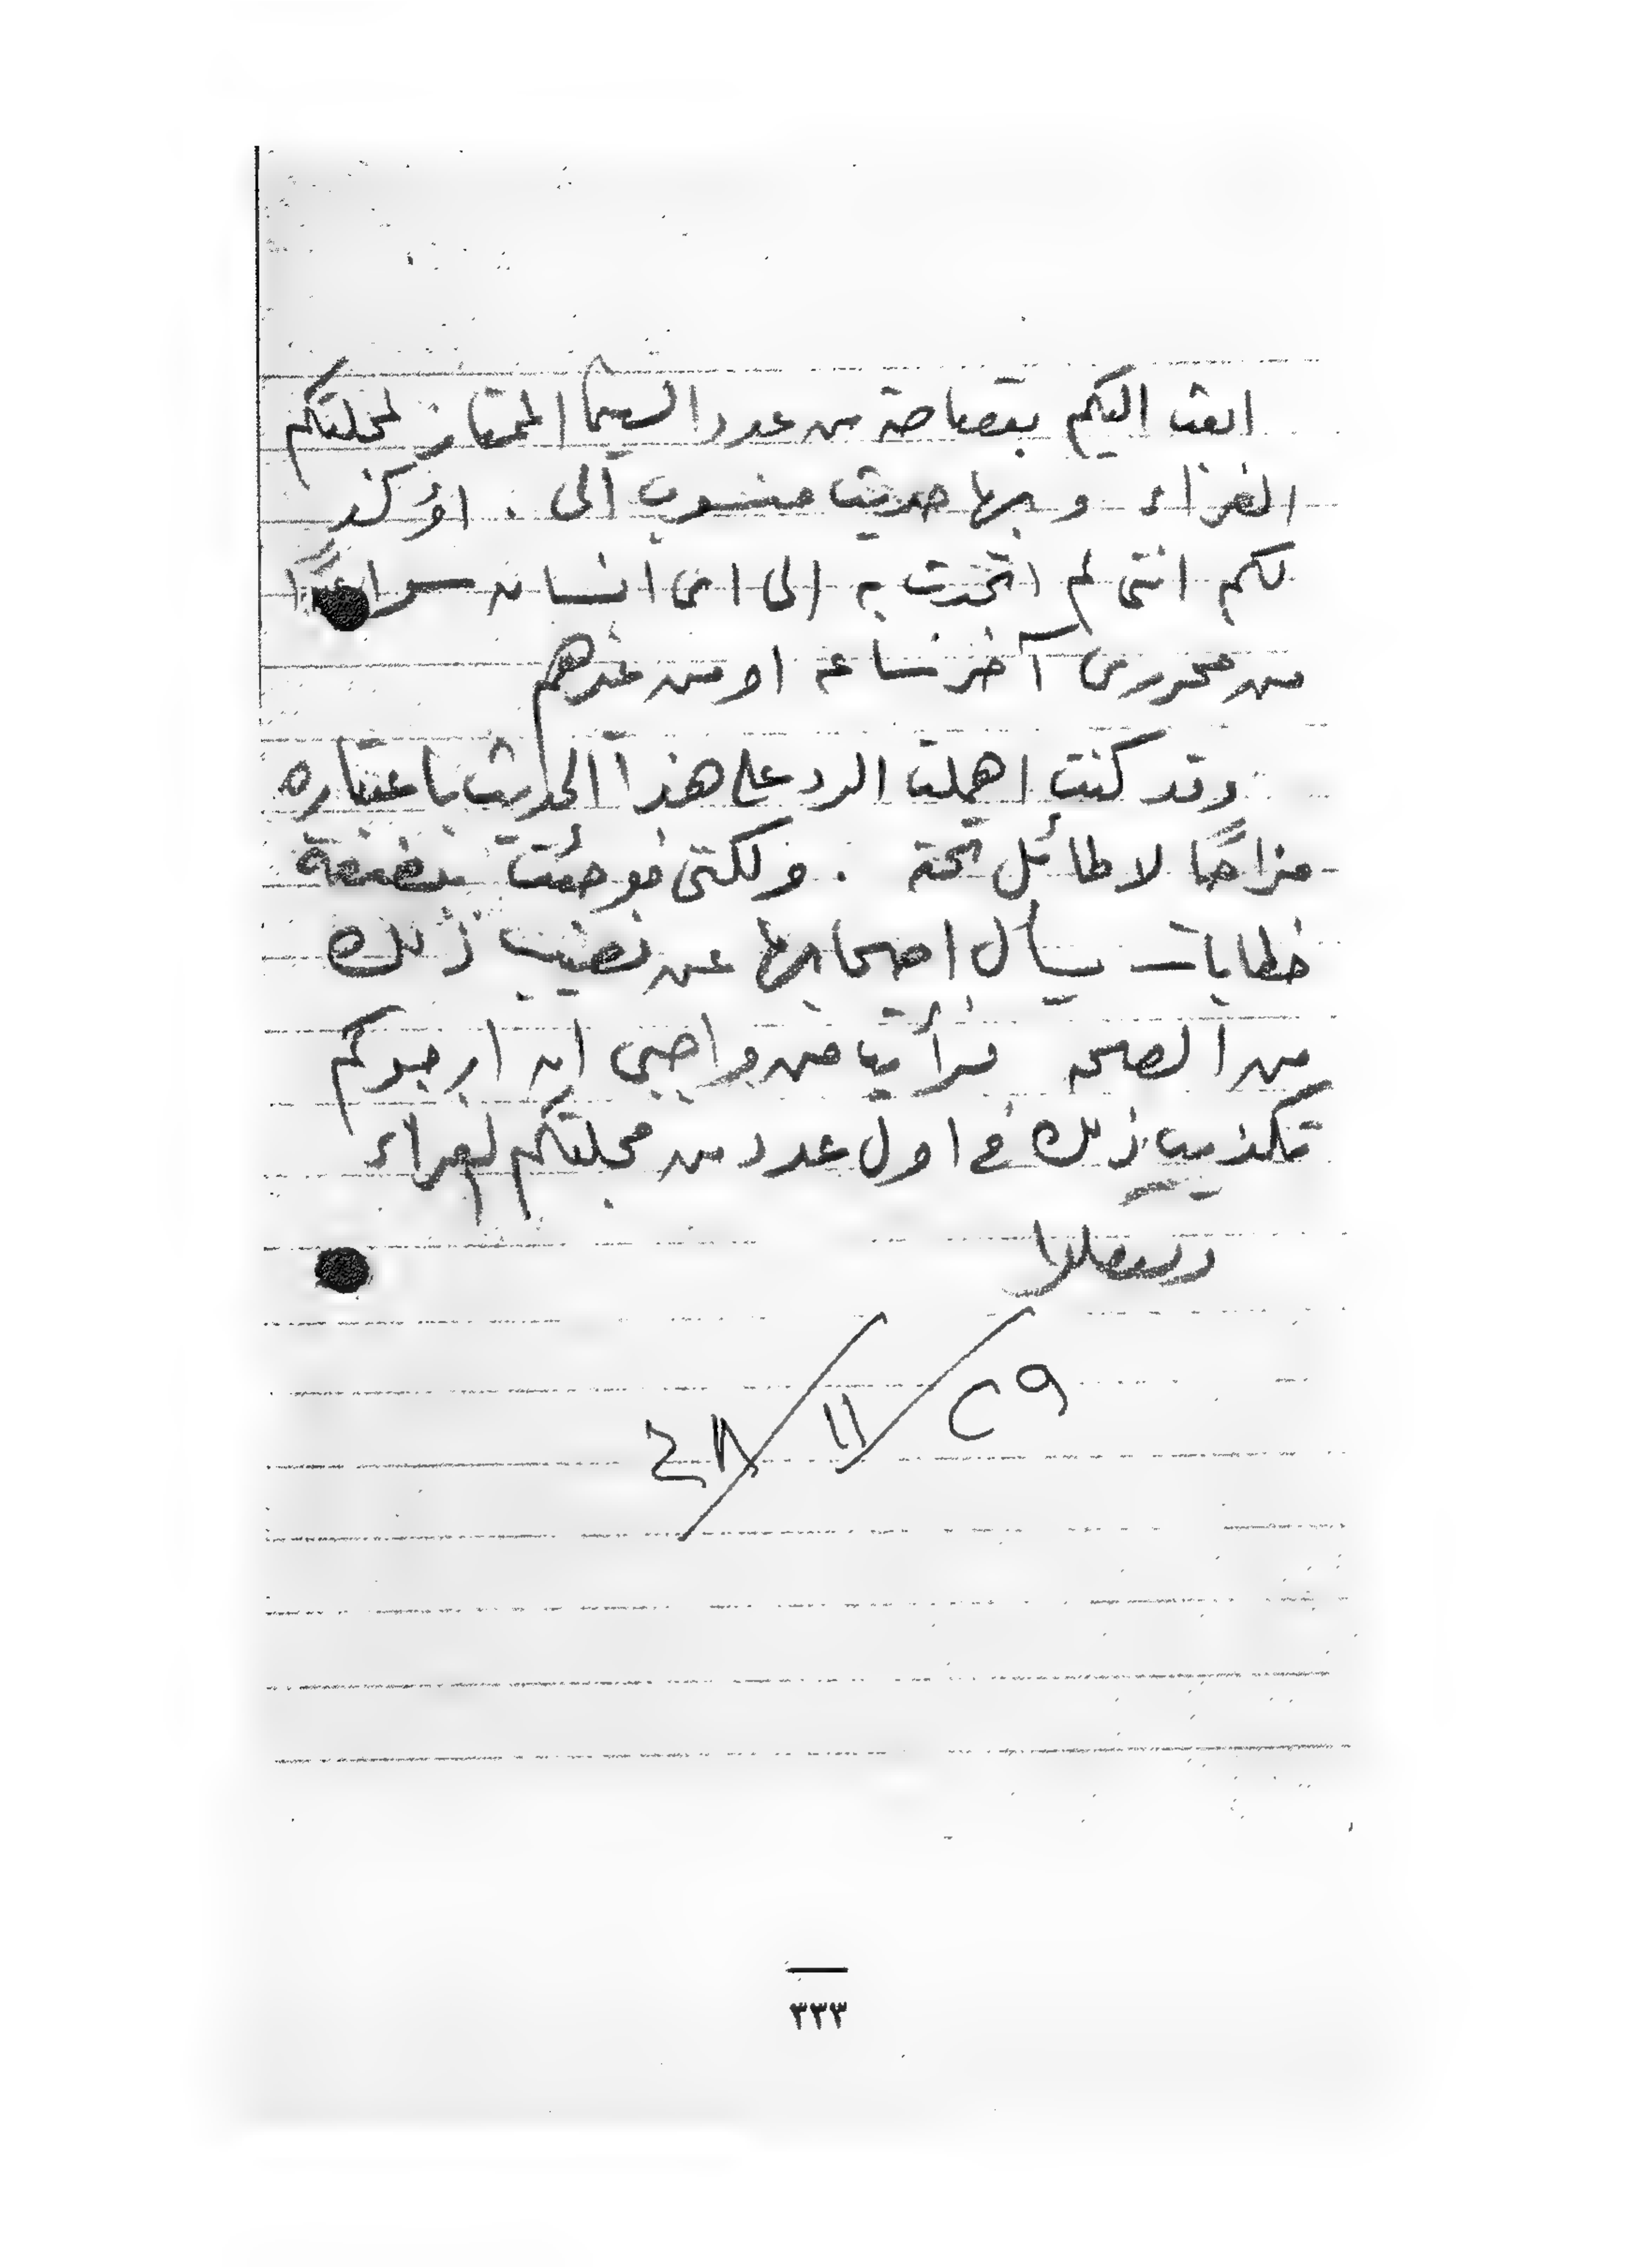 ابعث اليكم بقصاصة من عدد السينما الممتاز لمجلتكم
الغراء وبها حديث منسوب الى . اؤكد
لكم اننى لم اتحدث به إلى اى انسان سواء
من محررى آخر ساعة او من غيرهم
وقد كنت اهملت الرد على هذا الحديث باعتباره
مزاحًا لا طائل تحته . ولكنى فوجئت ببضعة
خطابات يسأل اصحابها عن نصيب ذلك
من الصحة فرأيت من واجبى ان ارجوكم
تكذيب ذلك فى اول عدد من مجلتكم الغراء
٢٩ / ١١ / ٤٨
٣٣٣